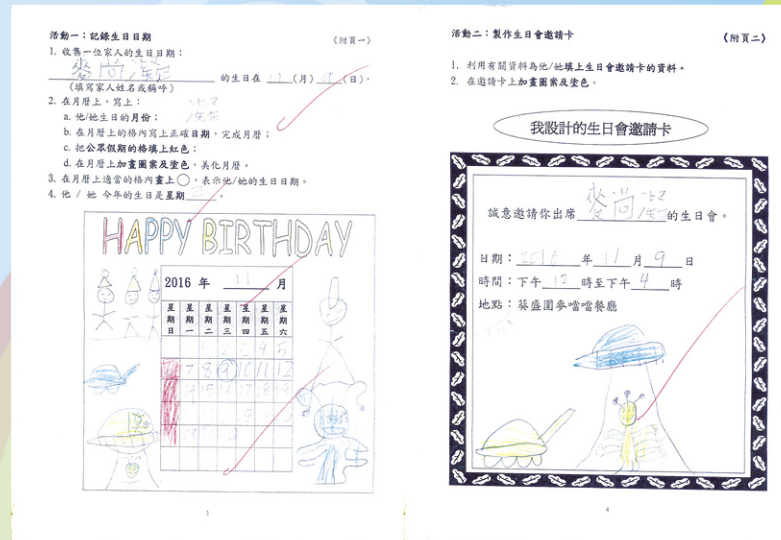 活動一：記錄生日日期
《附頁一》
1. 收集一位家人的生日日期：
麥尚 的生日在 11 (月) 9 (日)。
(填寫家人姓名或稱呼)
2. 在月曆上，寫上：
a. 他/她生日的月份；
b. 在月曆上的格內寫上正確日期，完成月曆；
c. 把公眾假期的格填上紅色；
d. 在月曆上加畫圖案及塗色，美化月曆。
3. 在月曆上適當的格內畫上○，表示他/她的生日日期。
4. 他 / 她 今年的生日是星期 三 。
HAPPY BIRTHDAY
2016 年 11 月
星期日 星期一 星期二 星期三 星期四 星期五 星期六
4 5
7 8 9 10 11 12
3
活動二：製作生日會邀請卡
《附頁二》
1. 利用有關資料為他/她填上生日會邀請卡的資料。
2. 在邀請卡上加畫圖案及塗色。
我設計的生日會邀請卡
誠意邀請你出席 麥尚 的生日會。
日期：2016 年 11 月 9 日
時間：下午 12 時至下午 4 時
地點：葵盛圍麥噹噹餐廳
4